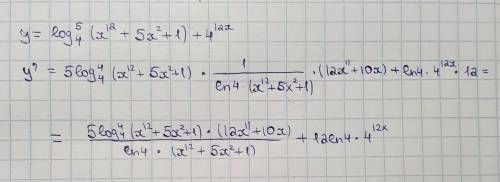 y = log₄⁵ (x¹² + 5x² + 1) + 4¹²ˣ
y' = 5log₄⁴ (x¹² + 5x² + 1) · 1/(ln4 · (x¹² + 5x² + 1)) · (12x¹¹ + 10x) + ln4 · 4¹²ˣ · 12 =
= (5log₄⁴ (x¹² + 5x² + 1) · (12x¹¹ + 10x))/(ln4 · (x¹² + 5x² + 1)) + 12ln4 · 4¹²ˣ